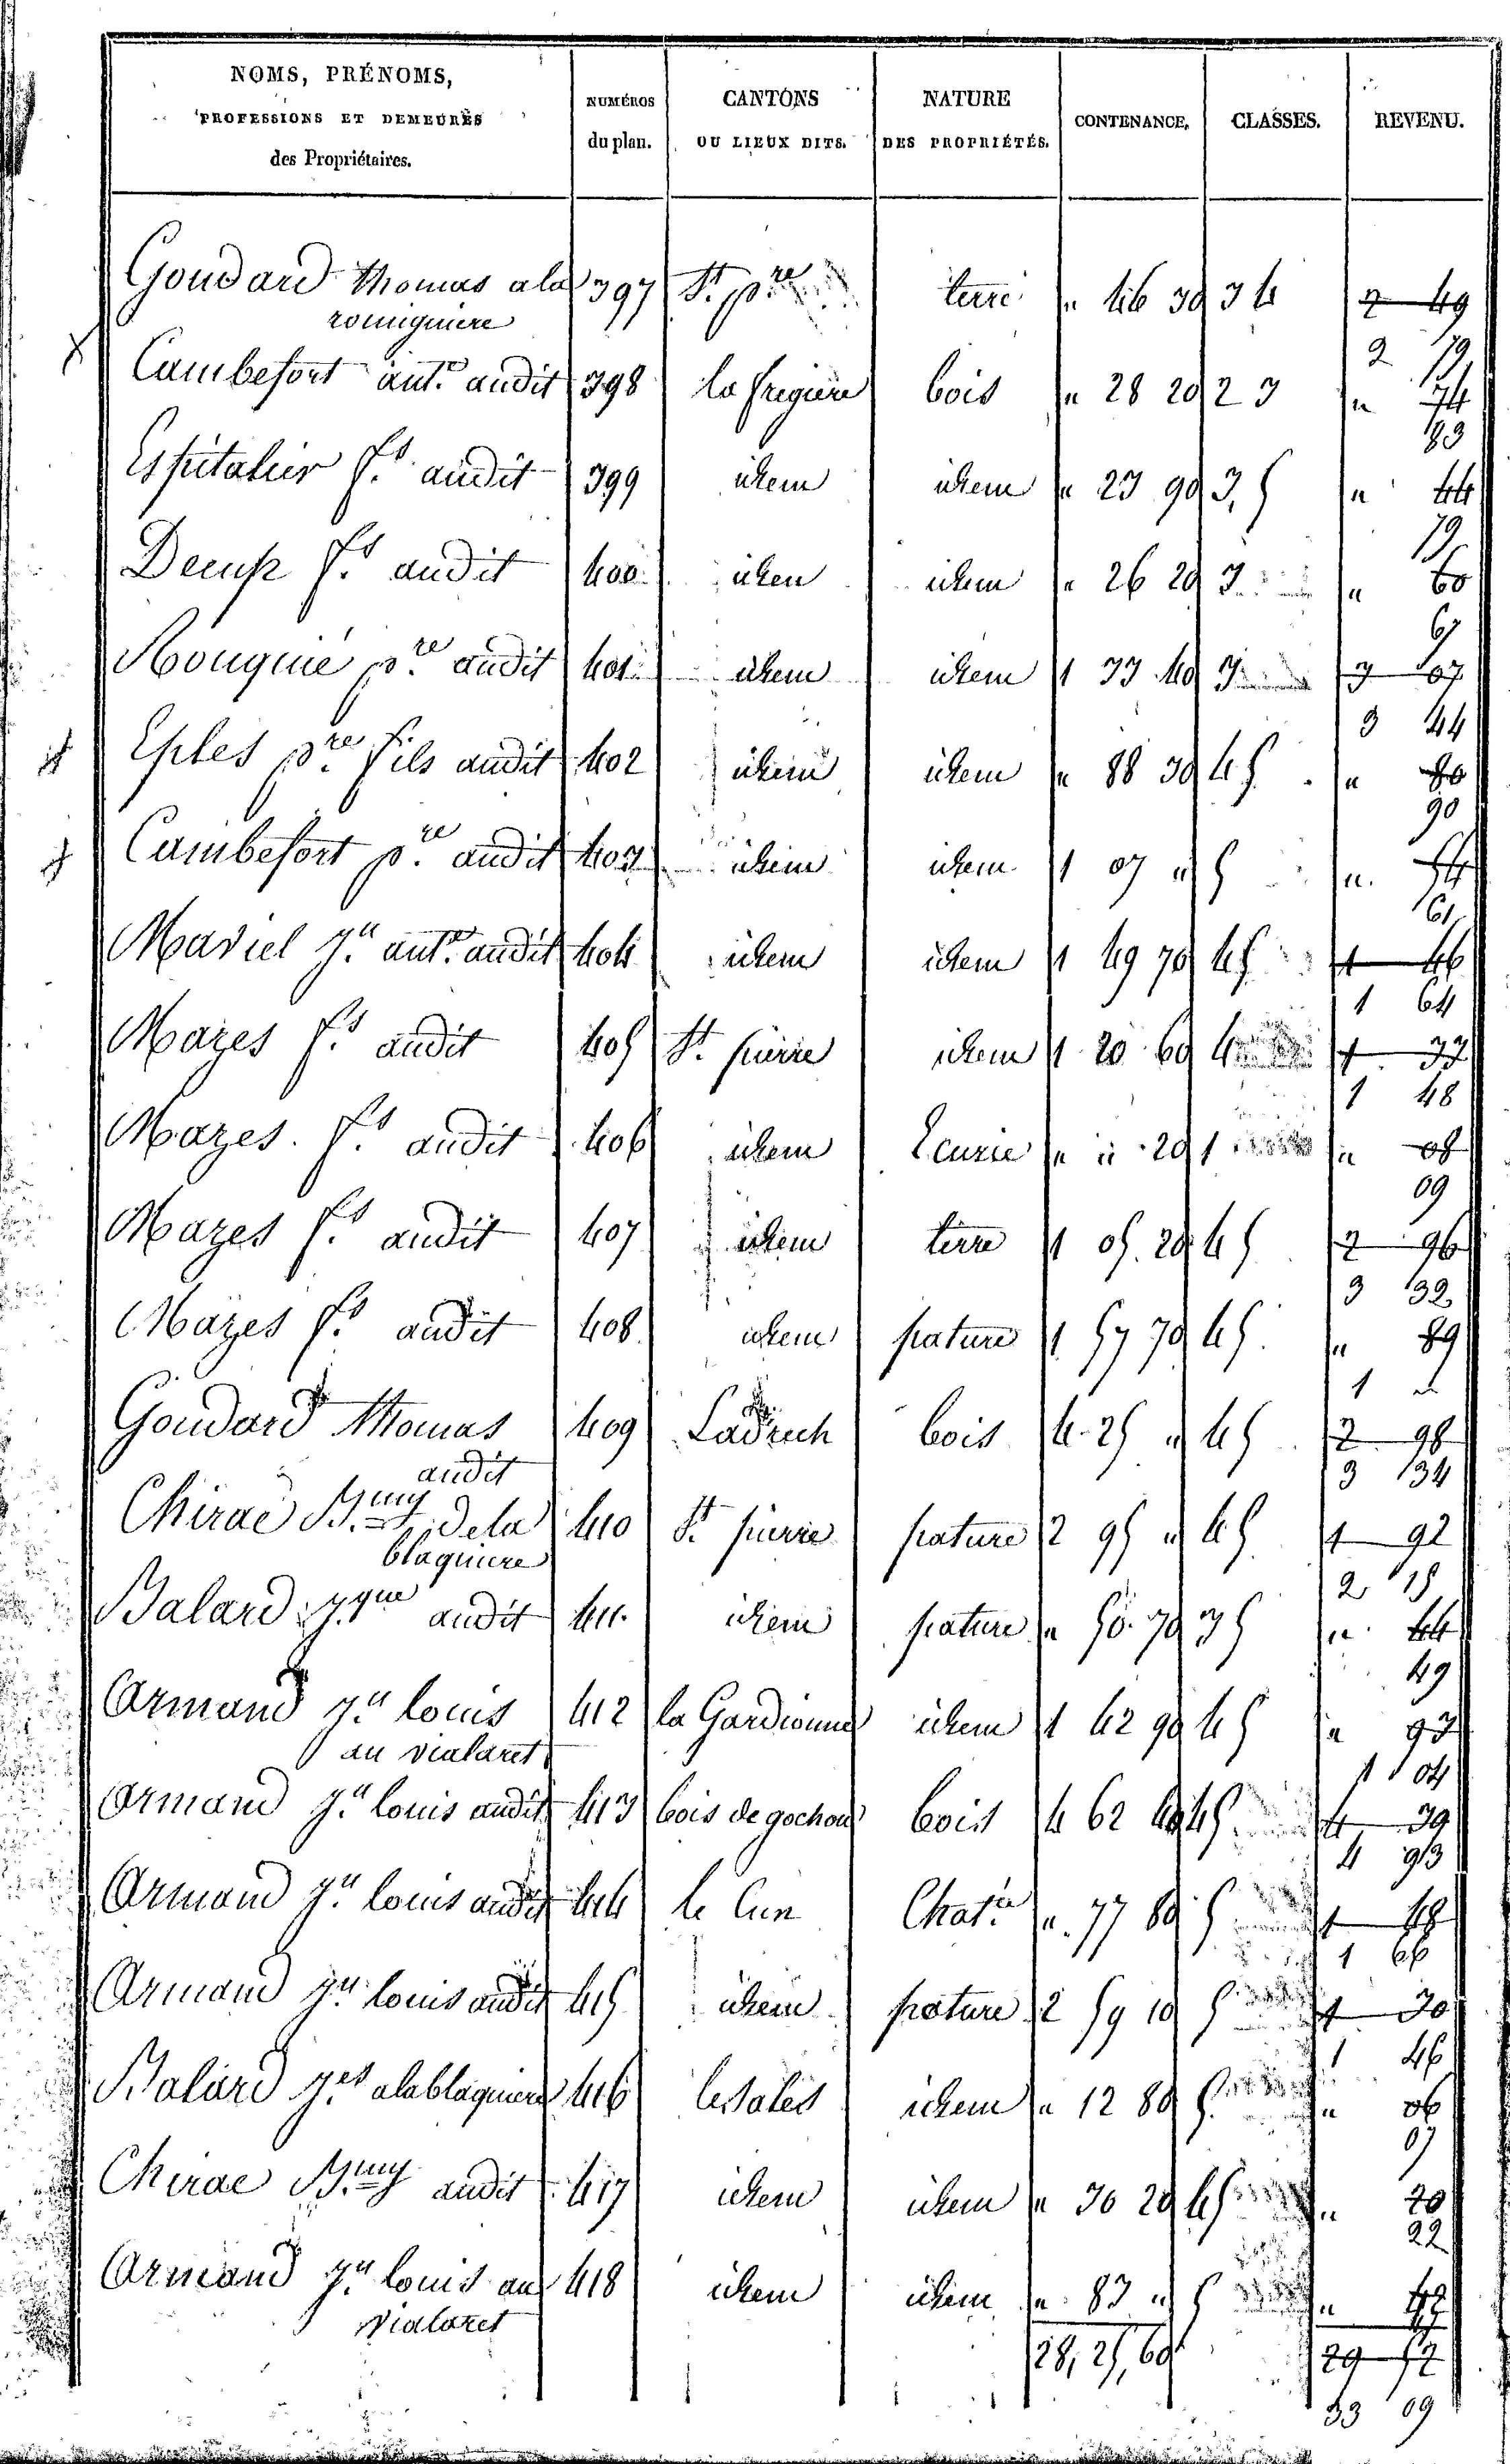 NOMS, PRÉNOMS, PROFESSIONS ET DEMEURES des Propriétaires. | NUMÉROS du plan. | CANTONS OU LIEUX DITS. | NATURE DES PROPRIÉTÉS. | CONTENANCE. | CLASSES. | REVENU.
Goudard thomas a la 397 St. pre terre " 46 30 3 4 2 49
romiguiere 2 79
Cambefort ant.e audit 398 la fregiere bois " 28 20 2 3 " 74
83
Espitalier f.s audit 399 idem idem " 23 90 3, 5 " 44
Decup f.s audit 400 idem idem " 26 20 3 " 60
67
Rouquié p.re audit 401 idem idem 1 33 40 3 3 07
3 44
Eples p.re fils audit 402 idem idem " 88 30 4 5 " 80
90
Cambefort p.re audit 403 idem idem 1 07 " 5 " 54
61
Maviel j.n ant.e audit 404 idem idem 1 49 70 4 5 1 46
1 64
Mazes f.s audit 405 St. pierre idem 1 20 60 4 1 33
1 48
Mazes f.s audit 406 idem Ecurie " " 20 1 " 08
09
Mazes f.s audit 407 idem terre 1 05 20 4 5 2 96
3 32
Mazes f.s audit 408 idem pature 1 57 70 4 5 " 89
1 "
Goudard thomas 409 Ladrech bois 4 25 " 4 5 2 98
audit 3 34
Chirac B.my de la 410 St. pierre pature 2 95 " 4 5 1 92
blaquiere 2 15
Balard j.que audit 411 idem pature " 50 70 3 5 " 44
49
Armand j.n louis 412 la Gardionne idem 1 42 90 4 5 " 93
au vialaret 1 04
Armand j.n louis audit 413 bois de gochou bois 4 62 40 4 5 4 39
4 93
Armand j.n louis audit 414 le Cun Chat.re " 77 80 5 1 48
1 66
Armand j.n louis audit 415 idem pature 2 59 10 5 1 30
1 46
Balard j.es a la blaquiere 416 idem " 12 80 5 " 06
07
Chirac B.my audit 417 idem idem " 30 20 4 5 " 20
22
Armand j.n louis au 418 idem idem " 83 " 5 "
Vialaret
28, 25, 60 29 52
33 09